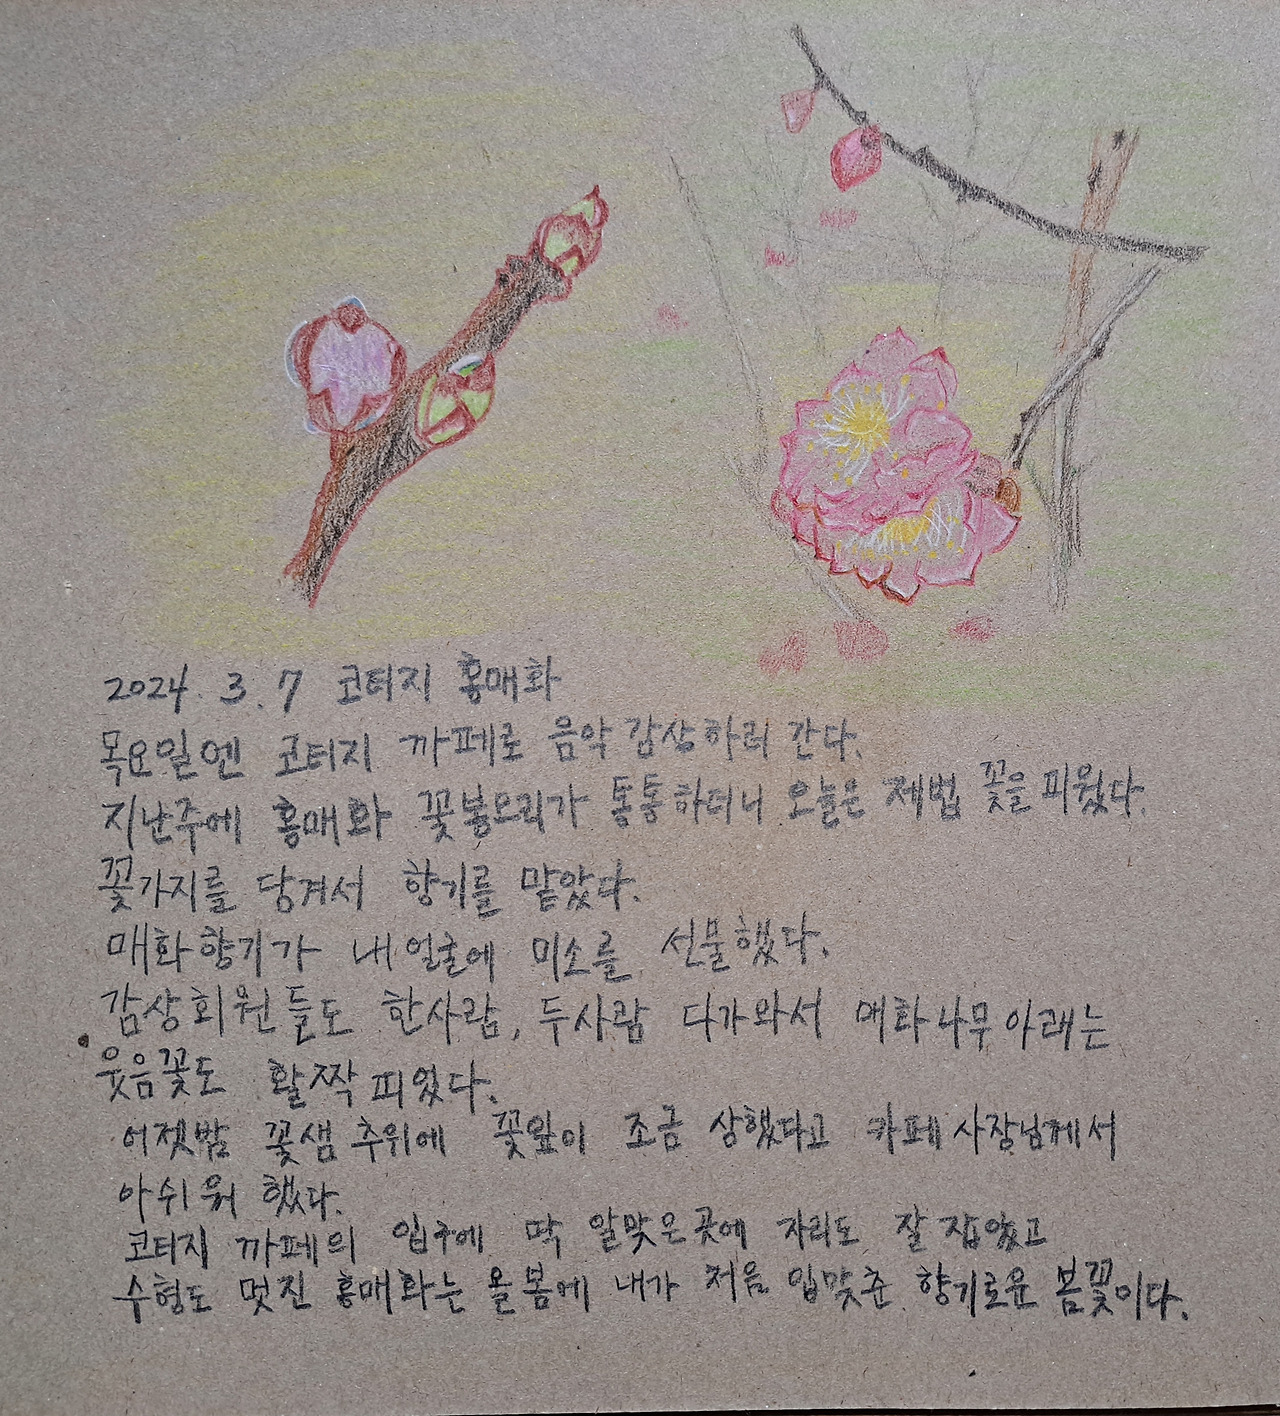 2024. 3. 7 코터지 홍매화
목요일엔 코터지 까페로 음악감상하러 간다.
지난주에 홍매화 꽃봉오리가 통통하더니 오늘은 제법 꽃을 피웠다.
꽃가지를 당겨서 향기를 맡았다.
매화향기가 내 얼굴에 미소를 선물했다.
감상회원들도 한사람, 두사람 다가와서 매화나무 아래는
웃음꽃도 활짝 피었다.
어젯밤 꽃샘 추위에 꽃잎이 조금 상했다고 카페 사장님께서
아쉬워 했다.
코터지 까페의 입구에 딱 알맞은 곳에 자리도 잘 잡았고
수형도 멋진 홍매화는 올봄에 내가 처음 입맞춘 향기로운 봄꽃이다.